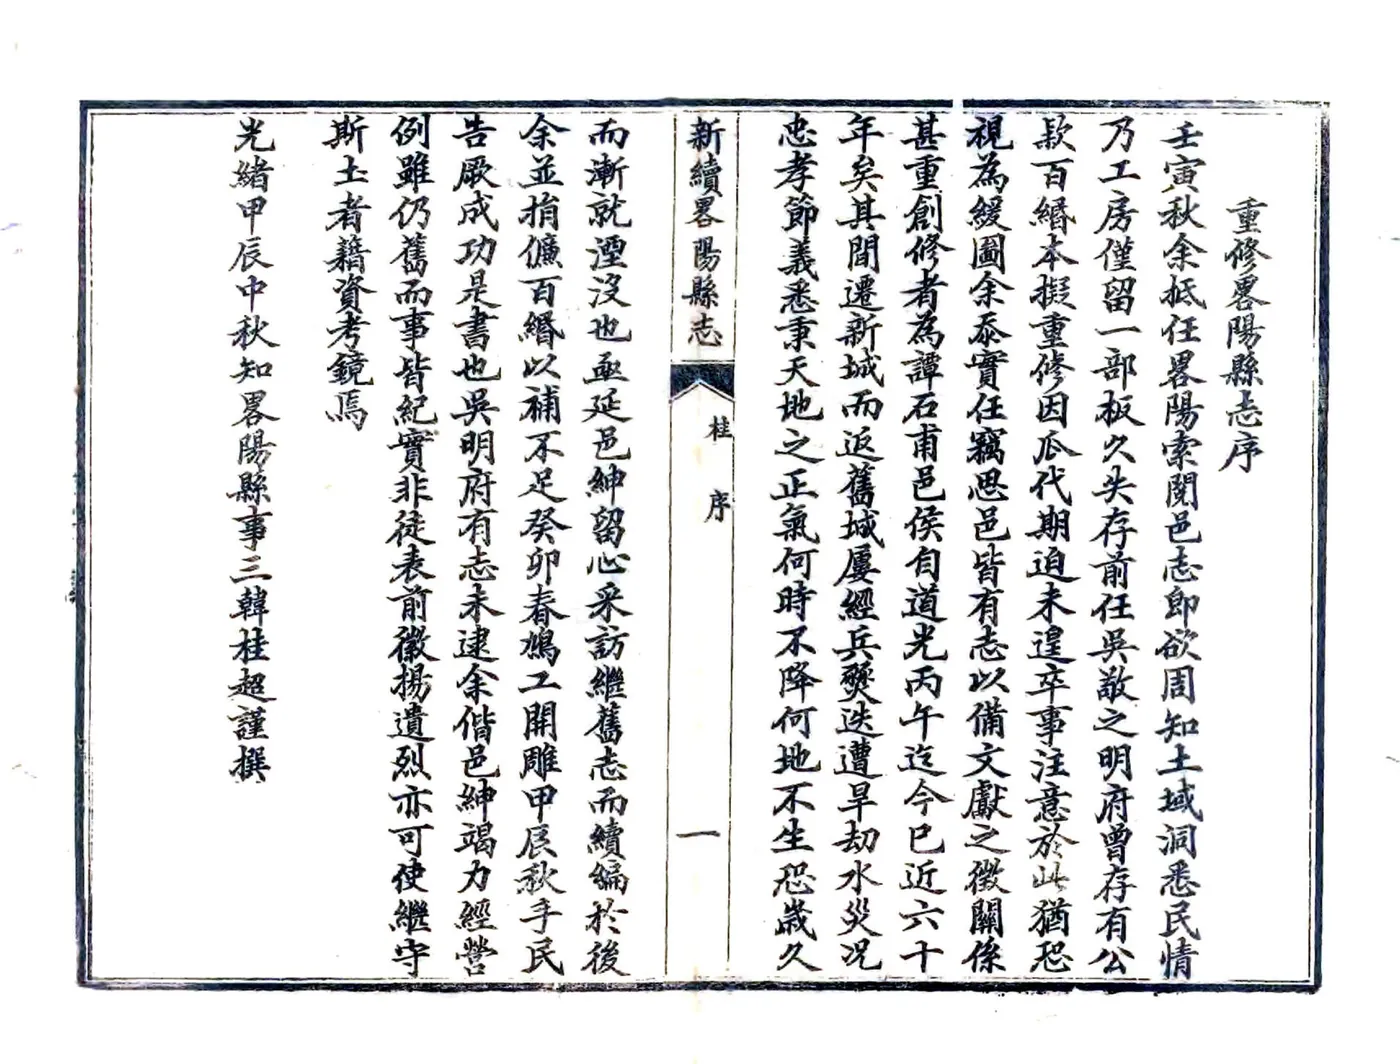 重修畧陽縣志序
壬寅秋余抵任畧陽索閱邑志即欲周知土域洞悉民情
乃工房僅留一部板久失存前任吳敬之明府曾存有公
款百緡本擬重修因瓜代期迫未遑卒事注意於此猶恐
視為緩圖余忝實任竊思邑皆有志以備文獻之徵關係
甚重創修者為譚石甫邑侯自道光丙午迄今已近六十
年矣其間遷新城而返舊城屢經兵燹迭遭旱劫水災况
忠孝節義悉秉天地之正氣何時不降何地不生恐歲久
新續畧陽縣志
桂序
一
而漸就湮沒也亟延邑紳留心采訪繼舊志而續編於後
余並捐儣百緡以補不足癸卯春鳩工開雕甲辰秋手民
告厥成功是書也吳明府有志未逮余偕邑紳竭力經營
例雖仍舊而事皆紀實非徒表前徽揚遺烈亦可使繼守
斯土者籍資考鏡焉
光緒甲辰中秋知畧陽縣事三韓桂超謹撰